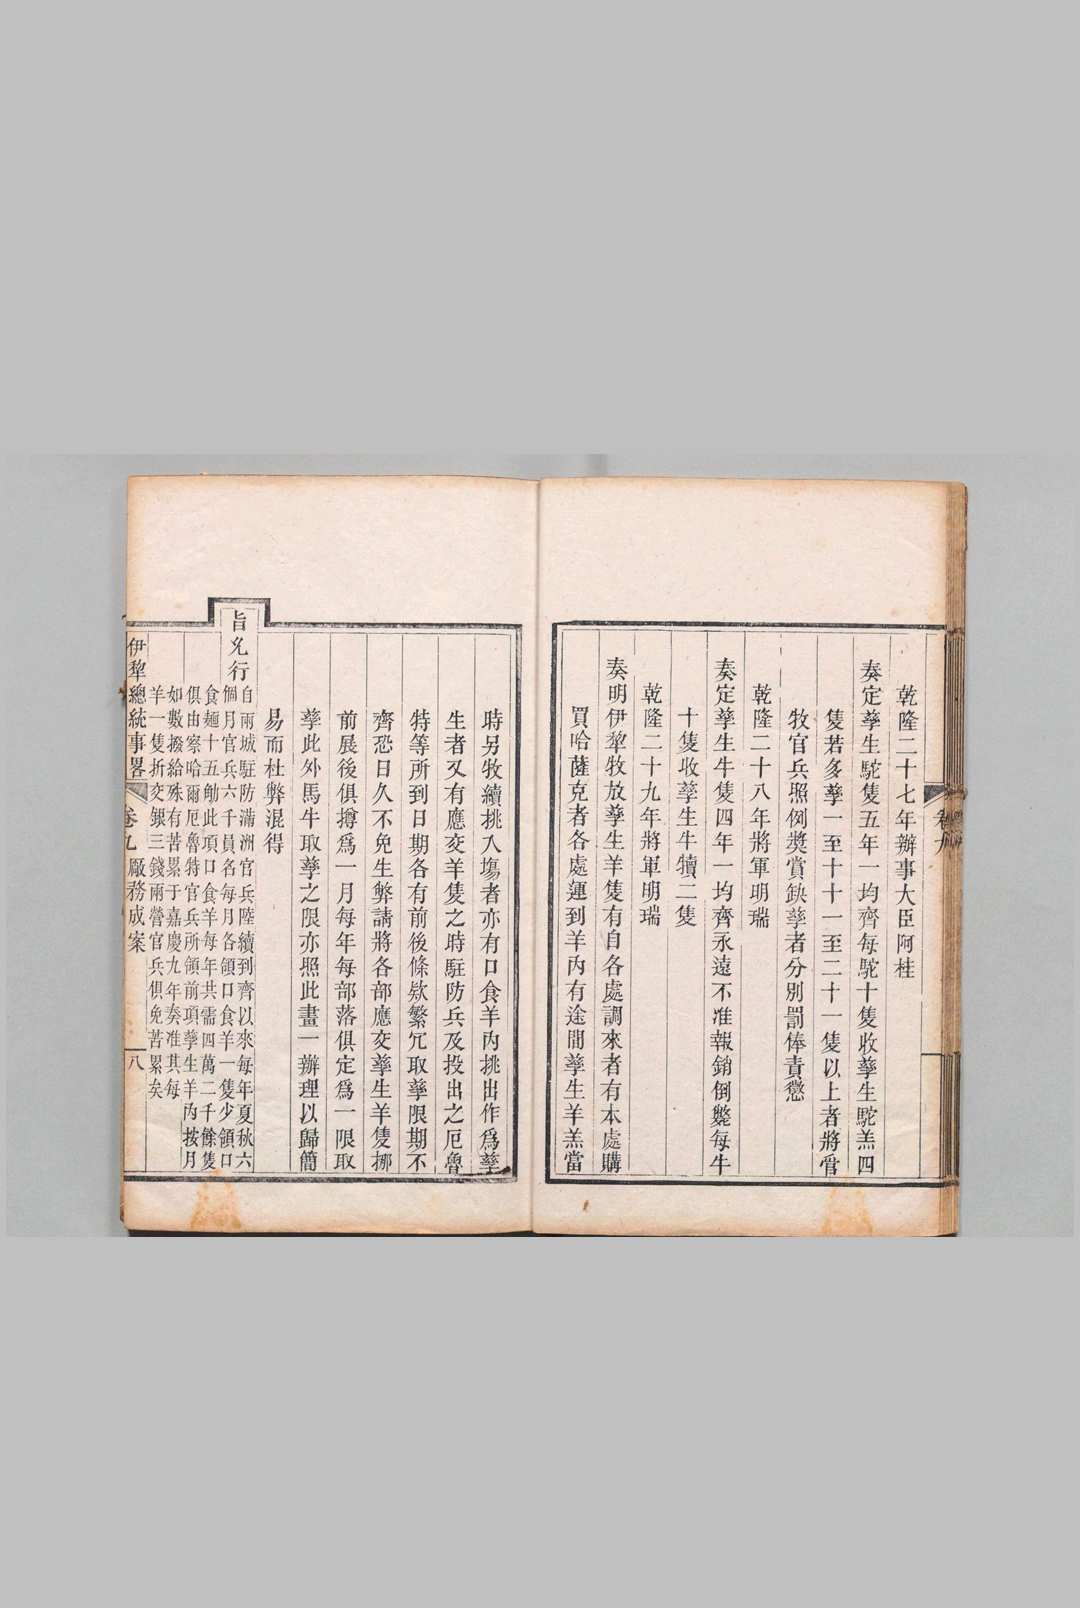 乾隆二十七年辦事大臣阿桂
奏定孳生駝隻五年一均齊每駝十隻收孳生駝羔四
隻若多孳一至十十一至二十一隻以上者將管
牧官兵照例獎賞缺孳者分別罰俸責懲
乾隆二十八年將軍明瑞
奏定孳生牛隻四年一均齊永遠不准報銷倒斃每牛
十隻收孳生牛犢二隻
乾隆二十九年將軍明瑞
奏明伊犂牧放孳生羊隻有自各處調來者有本處購
買哈薩克者各處運到羊內有途間孳生羊羔當
時另牧續挑入塲者亦有口食羊內挑出作爲孳
生者又有應交羊隻之時駐防兵及投出之厄魯
特等所到日期各有前後條欵繁冗取孳限期不
齊恐日久不免生弊請將各部應交孳生羊隻挪
前展後俱撙爲一月每年每部落俱定爲一限取
孳此外馬牛取孳之限亦照此畫一辦理以歸簡
易而杜弊混得
旨允行
自兩城駐防滿洲官兵陸續到齊以來每年夏秋六
個月官兵六千員名每月各領口食羊一隻少領口
食麵十五觔此項口食羊每年共需四萬二千餘隻
俱由察哈爾厄魯特官兵所領前項孳生羊內按月
如數撥給殊有苦累于嘉慶九年奏准其每
羊一隻折交銀三錢兩營官兵俱免苦累矣
伊犂總統事畧
卷九
厰務成案
八